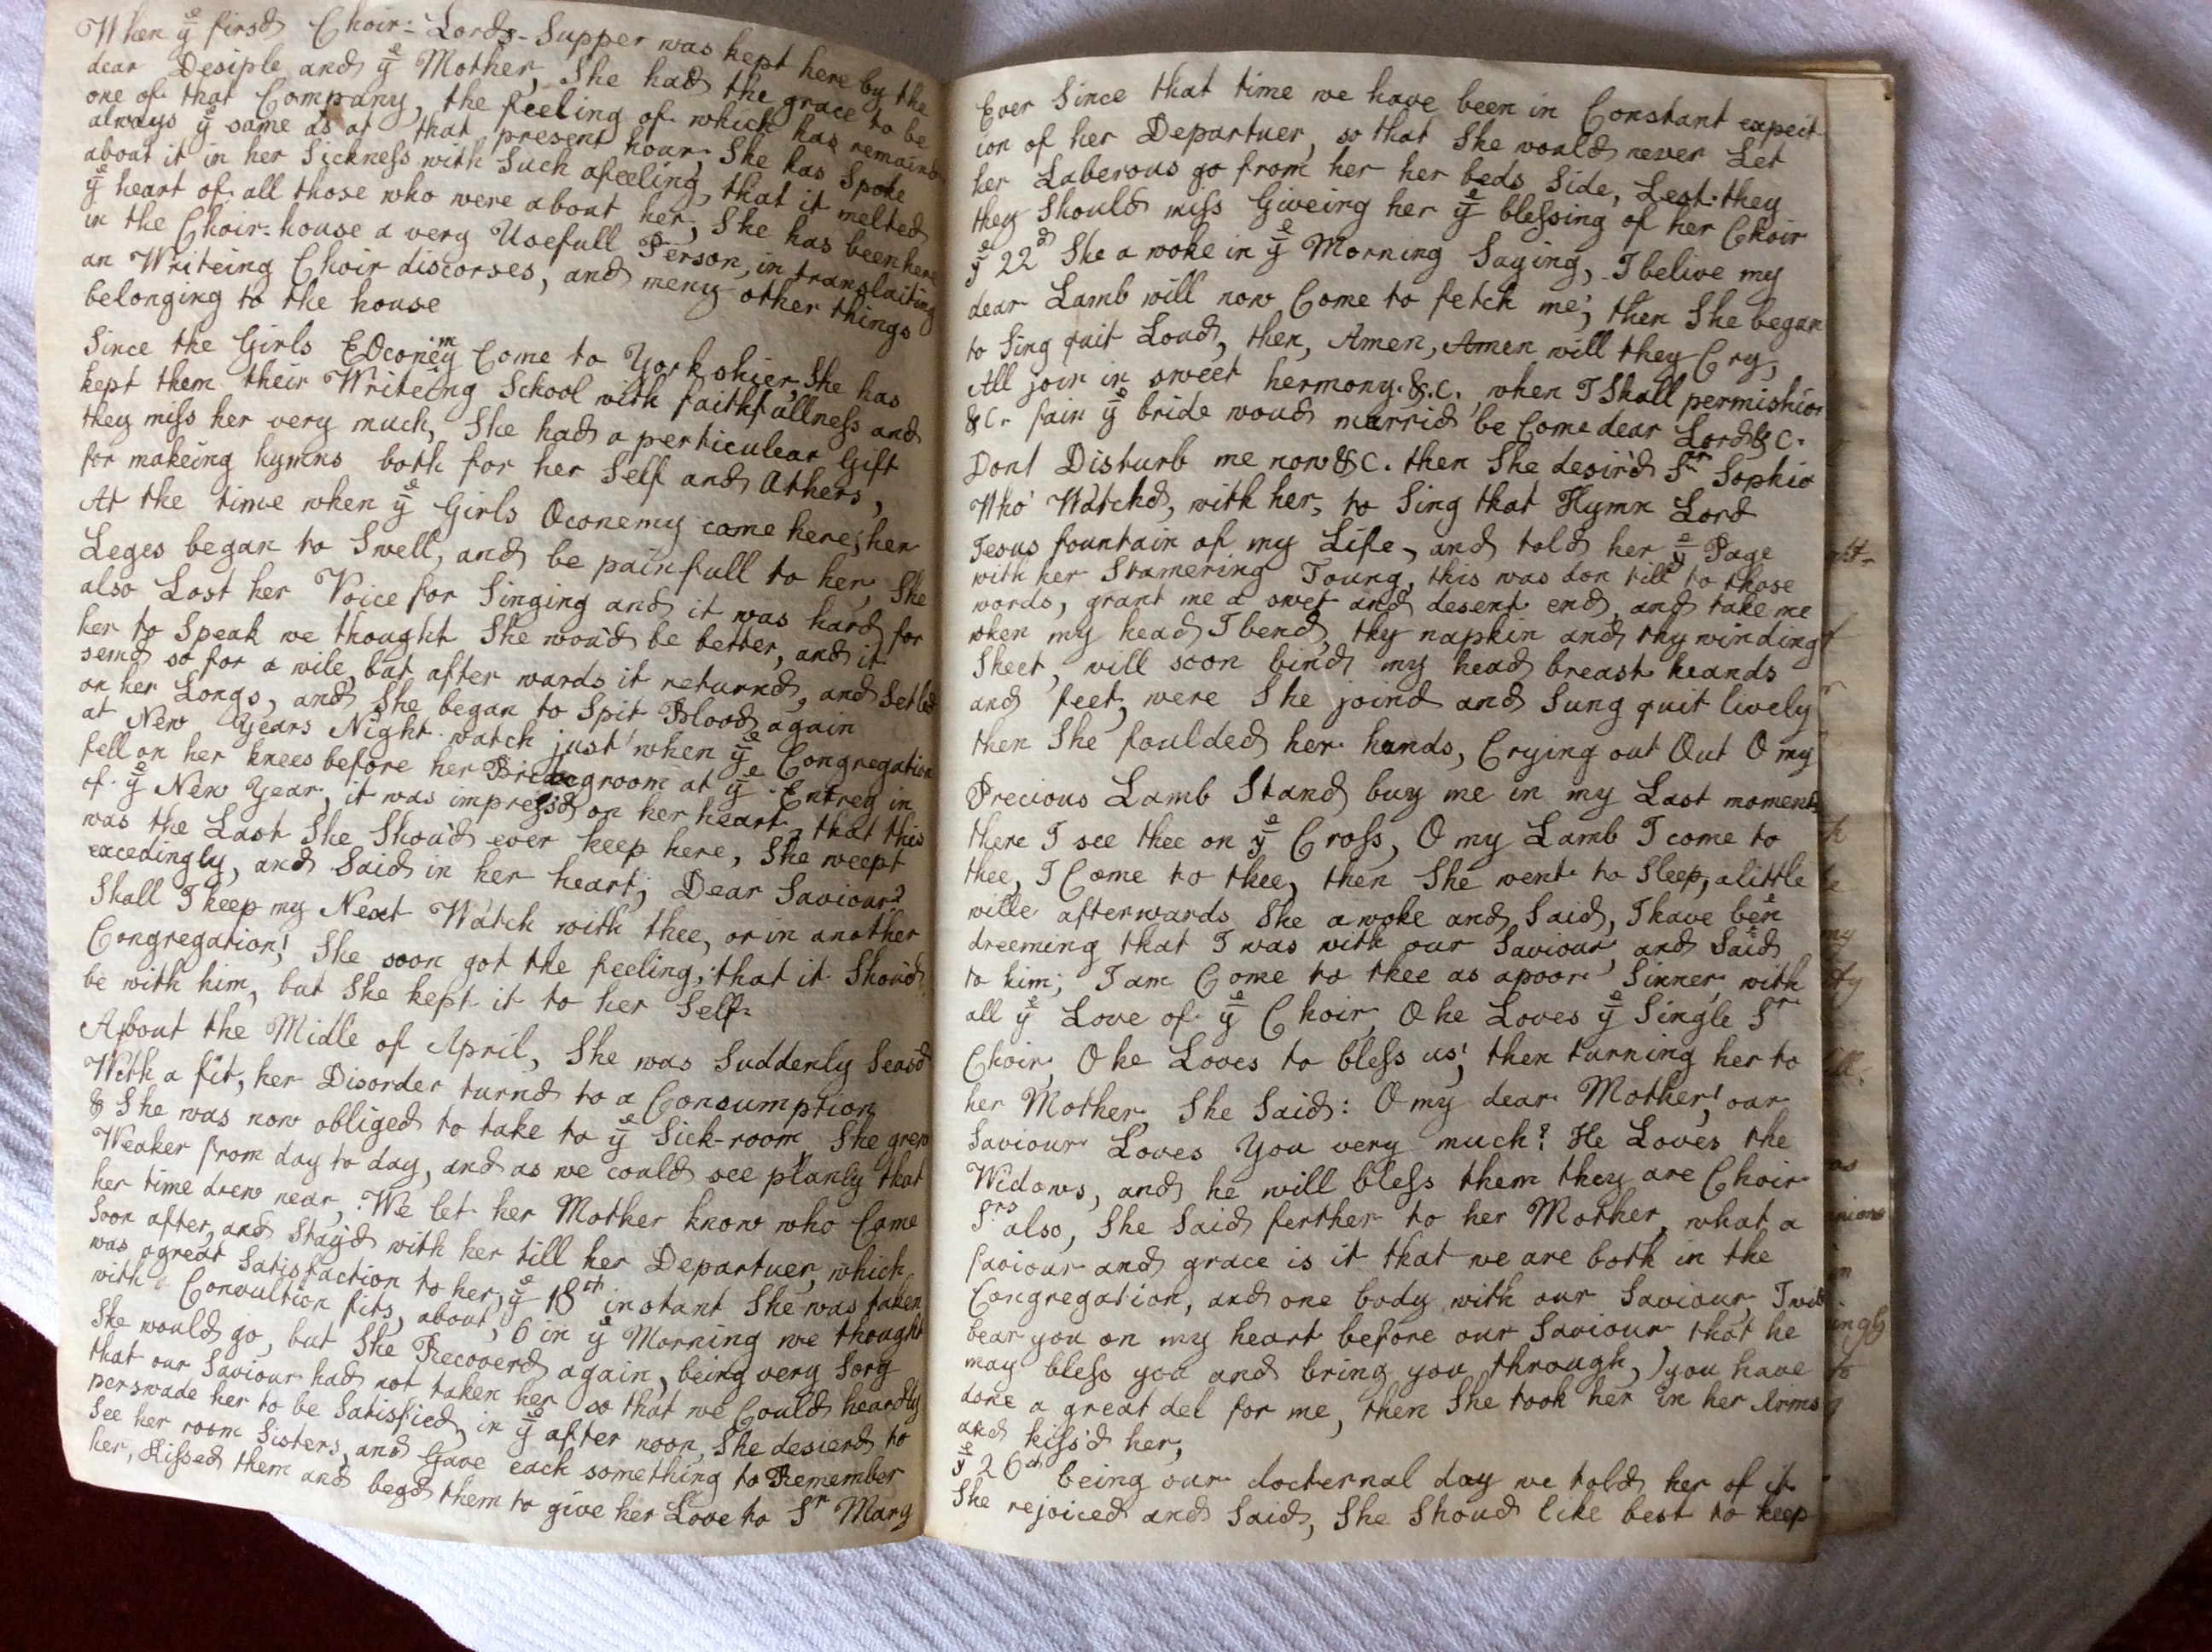 When yͤ first Choir-Lords-Supper was kept here by the
dear Desiple and yͤ Mother, She had the grace to be
one of that Company, the feeling of which has remaind
always yͤ same as at that present hour; She has Spoke
about it in her Sickness with Such afeeling, that it melted
yͤ heart of all those who were about her; She has been here
in the Choir-house a very Usefull Person, in translaiting
an Writeing Choir discorses, and meny other things
belonging to the house
Since the Girls Œconemy Come to Yorkshier, She has
kept them their Writeing School with faithfullness and
they miss her very much, She had a perticulear Gift
for makeing hymns both for her Self and Athers,
At the time when yͤ Girls Oconemy came here; her
Leges began to Swell, and be painfull to her, She
also Lost her Voice for Singing and it was hard for
her to Speak we thought She woud be better, and it
semd so for a wile, but after wards it returnd, and Setled
on her Longs, and She began to Spit Blood again
at New Years Night-watch just when yͤ Congregation
fell on her knees before her Bridegroom at yͤ Entrey in
of yͤ New Year, it was impressd on her heart, that this
was the Last She Shoud ever keep here, She weept
excedingly, and Said in her heart; Dear Saviour?
Shall I keep my Next Watch with thee, or in another
Congregation! She soon got the feeling; that it Shoud
be with him, but She kept it to her Self.
About the Midle of April, She was Suddenly Seasd
With a fit, her Disorder turnd to a Consumption
& She was now obliged to take to yͤ Sick-room She grew
Weaker from day to day, and as we could see planly that
her time drew near, We let her Mother know who Came
Soon after, and Stayd with her till her Departuer, which
was agreat Satisfaction to her; yͤ 18th instant She was taken
with Convultion fits, about, 6 in yͤ Morning we thought
She would go, but She Recoverd again, being very Sory
that our Saviour had not taken her so that we Could heardly
perswade her to be Satisfied, in yͤ after noon, She desierd to
See her room Sisters, and Gave each something to Remember
her, Kissed them and begd them to give her Love to Sr Mary
Ever Since that time we have been in Constant expect
ion of her Departuer, so that She would never Let
her Laberous go from her her beds Side, Lest they
they Should miss Giveing her yͤ blessing of her Choir
yͤ 22d She a woke in yͤ Morning Saying, I belive my
dear Lamb will now Come to fetch me; then She began
to Sing quit Loud, then, Amen, Amen will they Cry,
All join in sweet hermony.&.c. when I Shall permishion
&c. fain yͤ bride woud marrid be Come dear Lord&c.
Dont Disturb me now&c. then She desir'd Sr Sophia
Who Watchd, with her, to Sing that Hymn Lord
Jesus fountain of my Life, and told her yͤ Page
with her Stamering Toung, this was don till to those
words, grant me a swet and desent end, and take me
when my head I bend, thy napkin and thy winding
Sheet, will soon bind my head breast heands
and feet; were She joind and Sung quit lively
then She foulded her hands, Crying out Out O my
Precious Lamb Stand buy me in my Last moments
there I see thee on yͤ Cross, O my Lamb I come to
thee, I Come to thee, then She went to Sleep, alittle
wille afterwards She awoke and Said, I have ben
dreeming that I was with our Saviour, and Said
to him; I am Come to thee as apoor Sinner, with
all yͤ Love of yͤ Choir, O he Loves yͤ Single Sr
Choir, O he Loves to bless us; then turning her to
her Mother, She Said: O my dear Mother! our
Saviour Loves You very much! He Loves the
Widows, and he will bless them they are Choir
Srs also, She Said ferther to her Mother, what a
faviour and grace is it that we are both in the
Congregation, and one body with our Saviour, I will
bear you on my heart before our Saviour that he
may bless you and bring you through,) you have
done a great del for me, then She took her in her Arms
and kiss'd her,
yͤ 26th being our docternal day we told her of it
She rejoiced and Said, She Shoud like best to keep